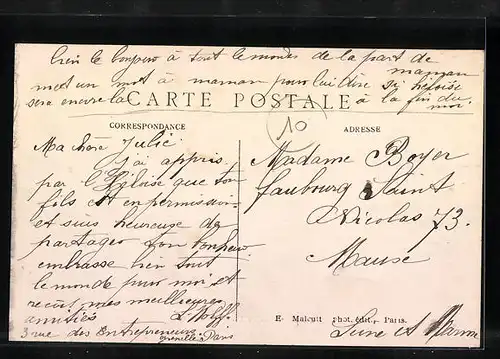 bien le bonjour à tout le monde de la part de maman
met un mot à maman pour lui dire si héloise
sera encore la à la fin du moi
CARTE POSTALE
CORRESPONDANCE
ADRESSE
10
Ma chère Julie
J'ai appris
par l'Heloise que ton
fils est en permission
et suis heureuse de
partager ton bonheur
embrasse bien tout
le monde pour moi et
recois mes meilleures
amitiés
3 rue des Entrepreneurs
Grenelle Paris
Madame Boyer
faubourg Saint
Nicolas 73.
Meause
Seine et Marne
E. Malcuit phot. édit., Paris.